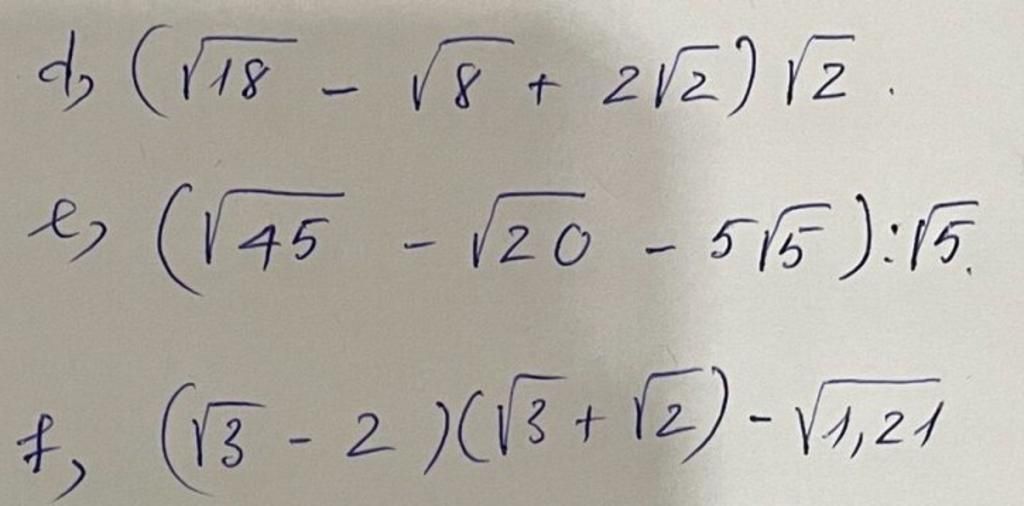 d, (√18 - √8 + 2√2) √2 .
e, (√45 - √20 - 5√5) : √5.
f, (√3 - 2)(√3 + √2) - √1,21